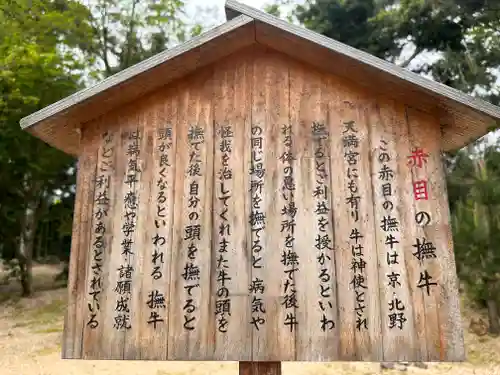 赤目の撫牛
この赤目の撫牛は京、北野
天満宮にも有り牛は神使とされ
撫でると利益を授かるといわ
れる体の悪い場所を撫でた後、牛
の同じ場所を撫でると病気や
怪我を治してくれまた牛の頭を
撫でた後自分の頭を撫でると
頭が良くなるといわれる 撫牛
は病気平癒や学業、諸願成就
などと利益があるとされている